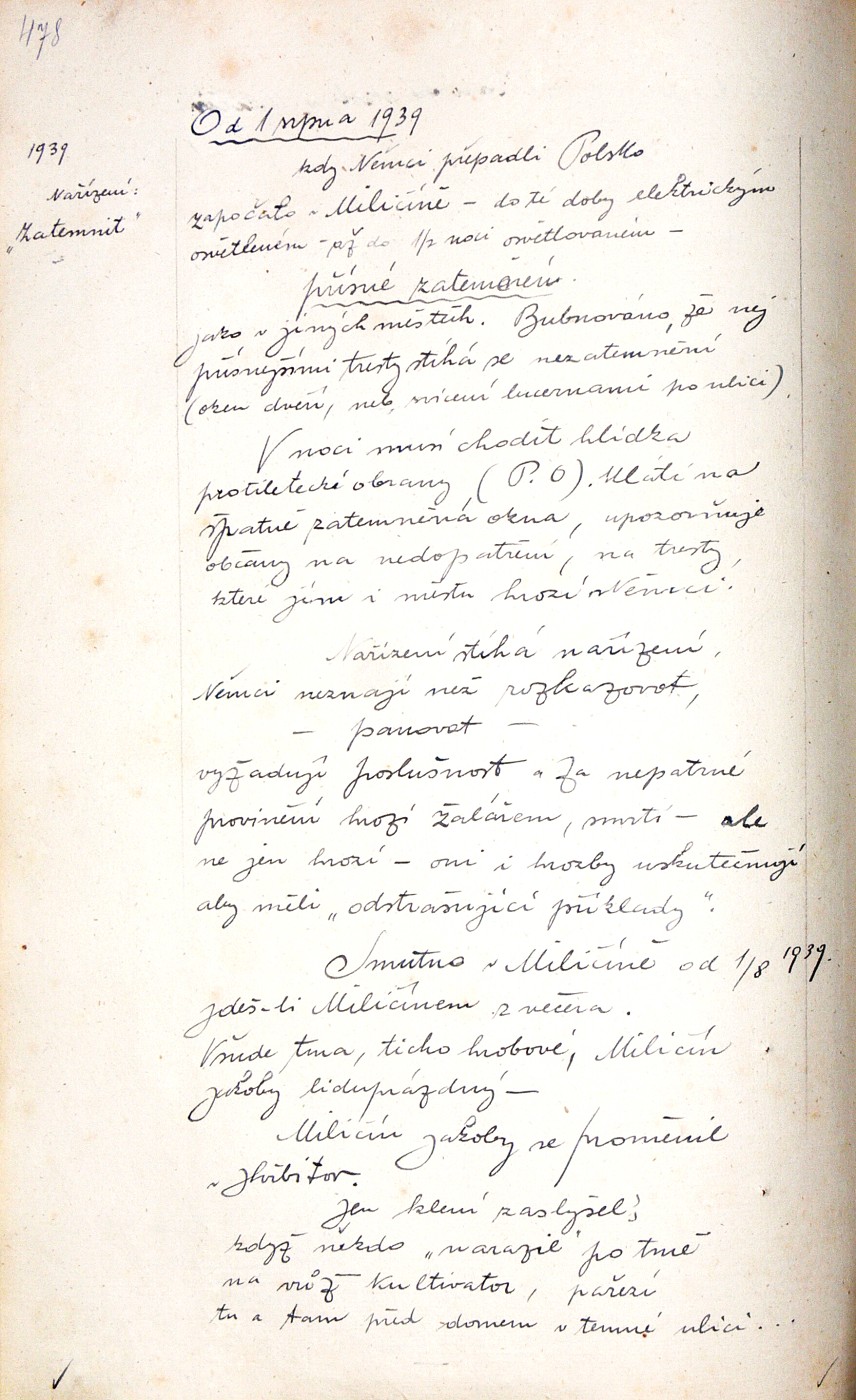 478
1939
Nařízení:
„Zatemnit"
Od 1 srpna 1939
kdy Němci přepadli Polsko
započato v Miličíně – do té doby elektrickým
osvětleném – až do 1/2 noci osvětlovaném –
přísné zatemnění.
jako v jiných městech. Bubnováno, že nej
přísnějšími tresty stíhá se nezatemnění
(oken dveří, neb, svícení lucernami po ulici).
V noci musí chodit hlídka
protiletecké obrany (P. O). Mlátí na
špatně zatemněná okna, upozorňuje
občany na nedopatření, na tresty,
které jim i městu hrozí Němci.
Nařízení stíhá nařízení,
Němci neznají než rozkazovat,
– panovat –
vyžadují poslušnost a za nepatrné
provinění hrozí žalářem, smrtí – ale
ne jen hrozí – oni i hrozby uskutečňují
aby měli „odstrašující příklady".
Smutno v Miličíně od 1/8 1939.
jdeš-li Miličínem z večera.
Všude tma, ticho hrobové, Miličín
jakoby liduprázdný –
Miličín jakoby se proměnil
v hřbitov.
Jen klení zaslyšel's
když někdo „narazil" po tmě
na vůz kultivator, pařezí
tu a tam před domem v temné ulici...